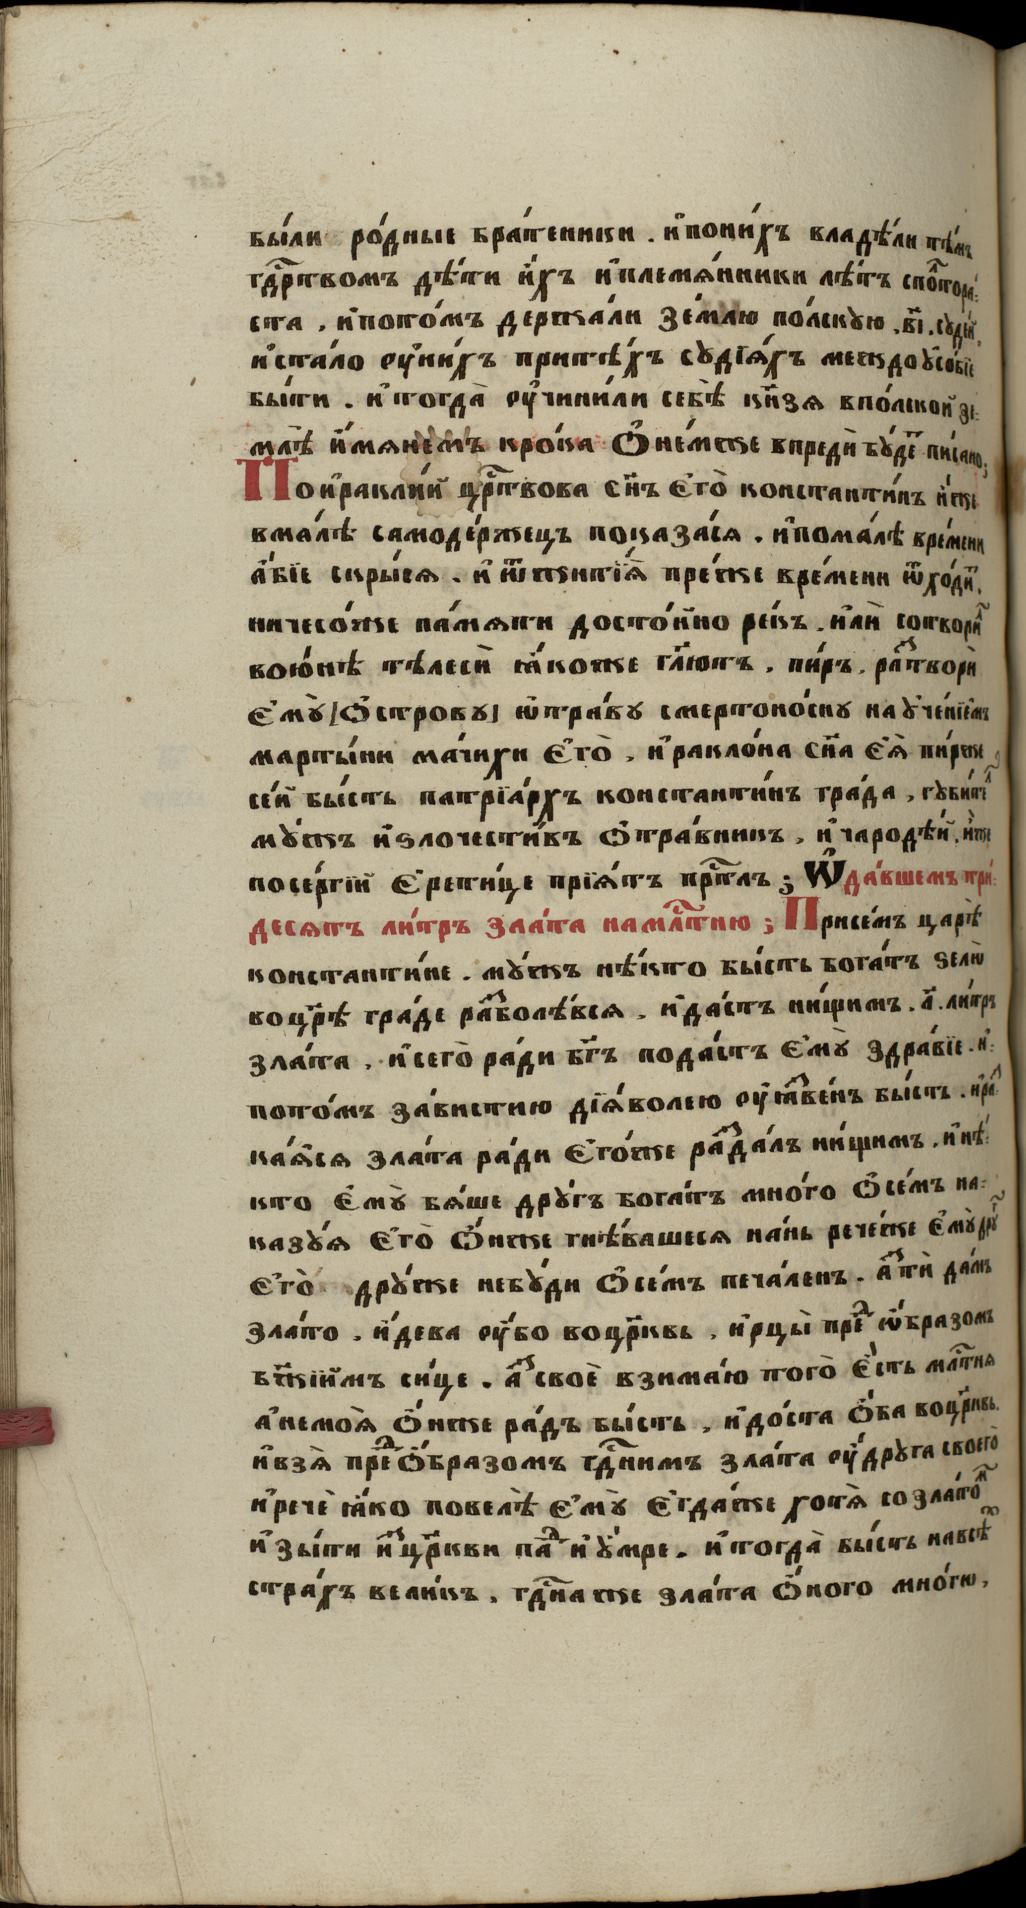 бы́ли ро́дные бра́теники . и҆пони́хъ владѣ́ли тѣ́мъ
гдⷭ҇ртвомъ дѣ́ти и҆́хъ и҆племѧ́нники лѣ́тъ спо́лтора́-
ста , и҆пото́мъ держа́ли зе́млю по́лскꙋю . в҃і . сꙋде́й ,
и҆ста́ло ᲂу҆ни́хъ притѣ́хъ сꙋдїѧ́хъ междоꙋсо́бїе
бы́ти . и҆тогда̀ ᲂу҆чини́ли себѣ̀ кн҃зѧ впо́лской зе-
млѣ̀ и҆́мянемъ кро́ка ѻ҆не́мже впредѝ бꙋ́деⷮ пи́сано ;
По и҆ракли́й црⷭ҇твова сн҃ъ є҆гѡ̀ константи́нъ и҆́же
вма́лѣ самоде́ржецъ показа́сѧ . и҆пома́лѣ вре́мени
а҆́бїе скры́сѧ . и҆ ѿжитїѧ̀ пре́же вре́мени ѿхо́диⷮ ,
ничесо́же па́мѧти досто́йно ре́къ . и҆лѝ сотвориⷧ҇
вою́нѣ тѣ́лесѝ ꙗ҆́коже гл҃ютъ , пи́ръ . раⷭ҇творѝ
є҆мꙋ̀ ѻ҆́строву ѡ҆тра́вꙋ смертоно́снꙋ наꙋче́нїемъ
марты́ни ма́чихи є҆гѡ̀ , и҆ракло́на сн҃а є҆ѧ̀ пи́рже
се́й бы́сть патрїа́рхъ константи́нъ гра́да , гꙋби́теⷧ
мꙋ́жъ и҆ѕлочести́въ ѻ҆тра́вникъ , и҆чародѣ́й , и҆́же
посе́ргїй є҆рети́це прїѧ́тъ прⷭ҇тлъ ; Ѿда́вшемъ три-
десѧтъ ли́тръ зла́та нами́лⷭ҇тию ; Присе́мъ царѣ̀
константи́не . мꙋ́жъ нѣ́кто бы́сть бога́тъ ѕелѡ̀
воцр҃ѣ гра́де раⷥболѣ́всѧ , и҆да́стъ ни́щимъ . л҃ . ли́тръ
зла́та , и҆сегѡ̀ ра́ди бг҃ъ пода́стъ є҆мꙋ̀ здра́вїе . и҆-
пото́мъ за́вистию дїѧ́волею ᲂу҆ꙗ҆́звенъ бы́сть . и҆раⷭ-
ка́ѧсѧ зла́та ра́ди є҆го́же раⷥда́лъ ни́щимъ . и҆нѣ́-
кто є҆мꙋ̀ бѧ́ше дрꙋ́гъ бога́тъ мно́го ѻ҆се́мъ на-
казꙋ́ѧ є҆гѡ̀ ѻ҆́нже гнѣ́вашесѧ на́нь рече́же є҆мꙋ̀ дрꙋⷢ҇
є҆гѡ̀ дрꙋ́же небꙋ́ди ѻ҆се́мъ печа́ленъ . а҆ⷥтѝ да́мъ
зла́то , и҆́дева ᲂу҆́бо воцр҃ковь , и҆рцы̀ преⷣѡ҆́бразомъ
бж҃їимъ си́це . а҆ⷥсвоѐ взима́ю тогѡ̀ є҆́сть млⷭ҇тнѧ
а҆немоѧ̀ ѻ҆́нже ра́дъ бы́сть , и҆до́ста ѻ҆́ба воцр҃ковь .
и҆взѧ̀ преⷣѻ҆́бразомъ гдⷭ҇нимъ зла́та ᲂу҆дрꙋ́га своегѡ̀
и҆речѐ ꙗ҆́ко повелѣ̀ є҆мꙋ̀ є҆гда́же хотѧ̀ созла́тоⷨ
и҆зы́ти и҆ⷥцр҃кви паⷣ и҆ꙋ́мре . и҆тогда̀ бы́сть навсѣⷯ
стра́хъ вели́къ , гдⷭ҇наже зла́та ѻ҆́ного мно́гѡ ,